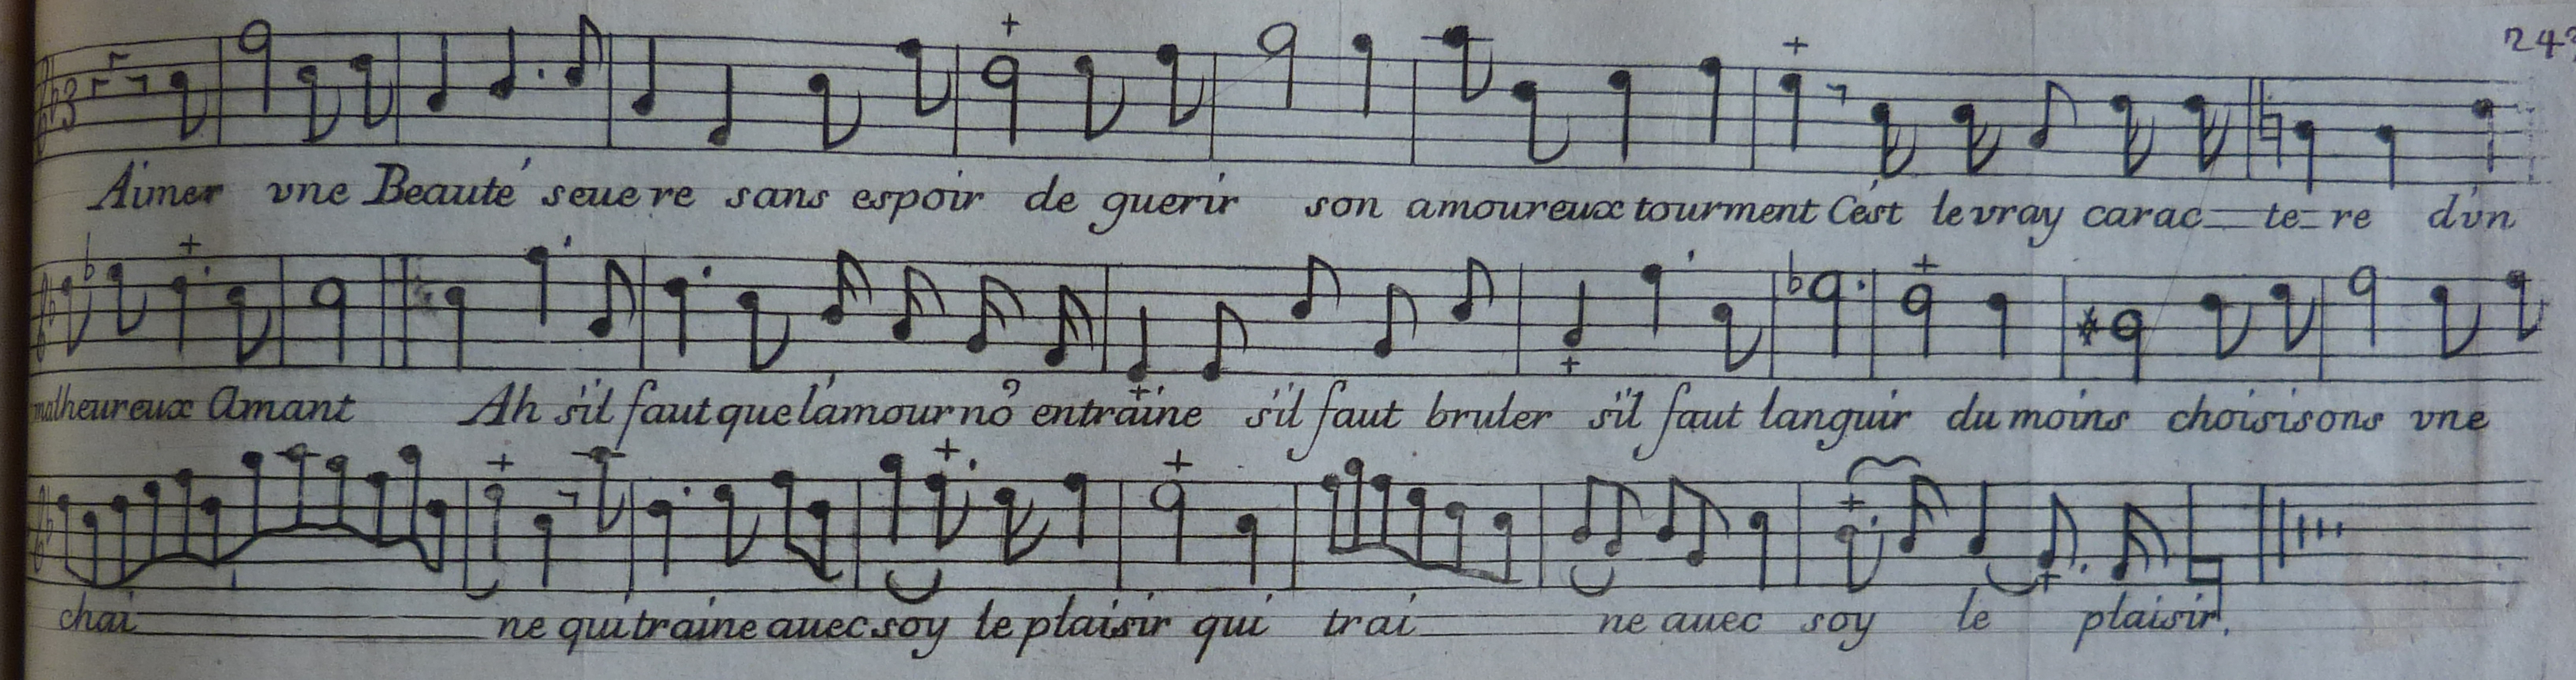 243
Aimer vne Beauté seuere sans espoir de guerir son amoureux tourment C'est le vray carac_te_re d'vn
malheureux Amant Ah s'il faut que l'amour no9 entraine s'il faut bruler s'il faut languir du moins choisisons vne
chai_ne qui traine auec soy le plaisir qui trai_ne auec soy le plaisir.